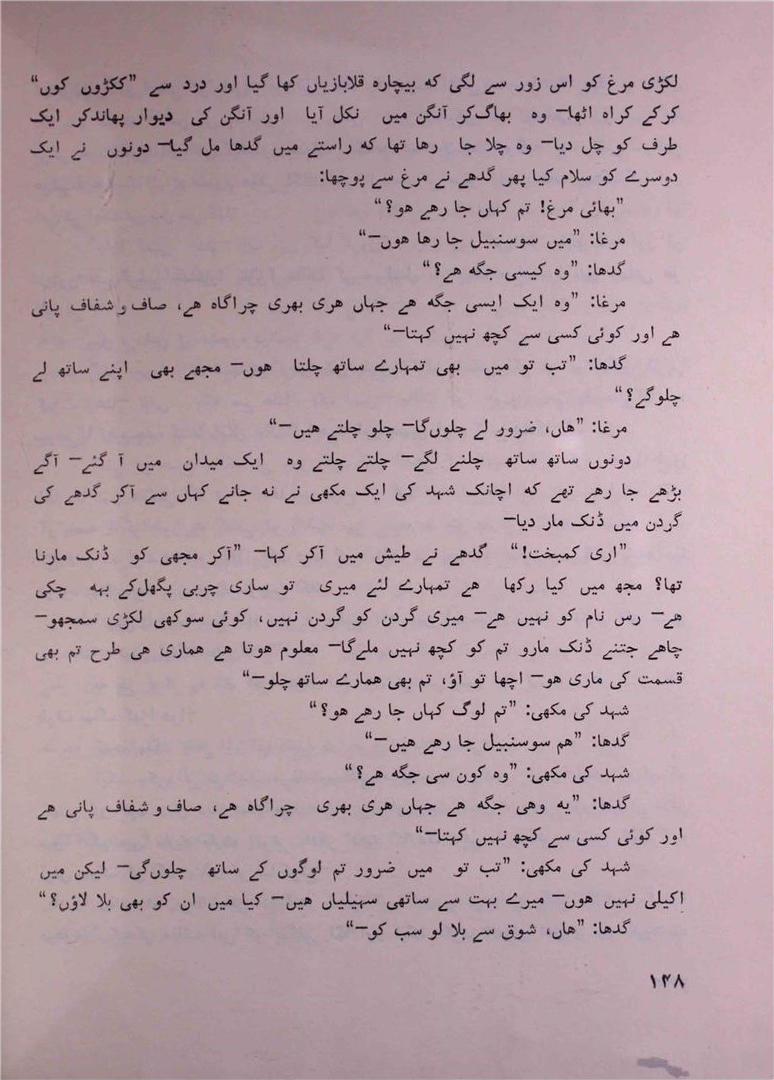 لکڑی مرغ کو اس زور سے لگی که بیچارہ قلابازیاں کھا گیا اور درد سے ”ککڑوں کوں“
کرکے کراہ اٹھا— وہ بھاگ‌کر آنگن میں نکل آیا اور آنگن کی دیوار پھاندکر ایک
طرف کو چل دیا— وہ چلا جا رھا تھا که راستے میں گدھا مل گیا— دونوں نے ایک
دوسرے کو سلام کیا پھر گدھے نے مرغ سے پوچھا:
”بھائی مرغ! تم کہاں جا رھے ھو؟“
مرغا: ”میں سوسنبیل جا رھا ھوں—“
گدھا: ”وہ کیسی جگه ھے؟“
مرغا: ”وہ ایک ایسی جگه ھے جہاں ھری بھری چراگاہ ھے، صاف و شفاف پانی
ھے اور کوئی کسی سے کچھ نہیں کہتا—“
گدھا: ”تب تو میں بھی تمہارے ساتھ چلتا ھوں— مجھے بھی اپنے ساتھ لے
چلوگے؟“
مرغا: ”ھاں، ضرور لے چلوں‌گا— چلو چلتے ھیں—“
دونوں ساتھ ساتھ چلنے لگے— چلتے چلتے وہ ایک میدان میں آ گئے— آگے
بڑھے جا رھے تھے که اچانک شہد کی ایک مکھی نے نه جانے کہاں سے آکر گدھے کی
گردن میں ڈنک مار دیا—
”اری کمبخت!“ گدھے نے طیش میں آکر کہا— ”آکر مجھی کو ڈنک مارنا
تھا؟ مجھ میں کیا رکھا ھے تمہارے لئے میری تو ساری چربی پگھل‌کے بہه چکی
ھے— رس نام کو نہیں ھے— میری گردن کو گردن نہیں، کوئی سوکھی لکڑی سمجھو—
چاھے جتنے ڈنک مارو تم کو کچھ نہیں ملےگا— معلوم ھوتا ھے ھماری ھی طرح تم بھی
قسمت کی ماری ھو— اچھا تو آؤ، تم بھی ھمارے ساتھ چلو—“
شہد کی مکھی: ”تم لوگ کہاں جا رھے ھو؟“
گدھا: ”ھم سوسنبیل جا رھے ھیں—“
شہد کی مکھی: ”وہ کون سی جگه ھے؟“
گدھا: ”یه وھی جگه ھے جہاں ھری بھری چراگاہ ھے، صاف و شفاف پانی ھے
اور کوئی کسی سے کچھ نہیں کہتا—“
شہد کی مکھی: ”تب تو میں ضرور تم لوگوں کے ساتھ چلوں‌گی— لیکن میں
اکیلی نہیں ھوں— میرے بہت سے ساتھی سہیلیاں ھیں— کیا میں ان کو بھی بلا لاؤں؟“
گدھا: ”ھاں، شوق سے بلا لو سب کو—“
۱۴۸